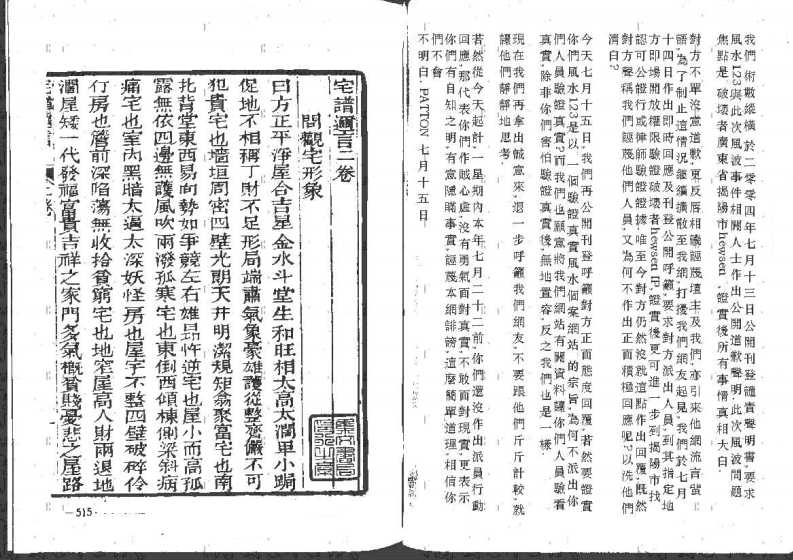 我們 術數縱橫 於二零零四年七月十三日公開刊登譴責聲明書,要求
風水123與此次風波事件相關人士作出公開道歉聲明,此次風波問題
焦點是 破壞者廣東省揭陽市hewsen ,證實後所有事情真相大白.
對方不單沒意道歉,更反唇相譏誣蔑壇主及我們,亦引來他網流言蜚
語,為了制止這情況繼續擴散至我網,打擾我們網友起見,我們於七月
十四日作出即時回應及刊登公開呼籲,要求對方派出人員,到其指定地
方即場開放權限驗證破壞者hewsen IP,證實後更可進一步到揭陽市找
認可公證行或律師驗證證據,唯至今對方仍然沒就這點作出回覆,既然
對方聲稱我們誣蔑他們人員,又為何不作出正面積極回應呢?以洗他們
清白?
今天七月十五日,我們再公開刊登呼籲對方正面態度回覆,若然要證實
你們風水123是以一個驗證真實風水個案網站的宗旨,為何不派出你
們人員驗證真實?而我們也願意將我們網站有關資料讓你們人員驗看
真實,除非你們害怕驗證真實後,無地置容,反之我們也是一樣.
現在我們再拿出誠意來,退一步呼籲我們網友,不要跟他們斤斤計較,就
讓他們靜靜地思考.
若然從今天起計,一星期內本年七月二十二前,你們還沒作出派員行動
回應,那代表你們作賊心虛,沒有勇氣面對真實,不敢面對現實,更表示
你們有自知之明,有意隱瞞事實,誣蔑本網誹謗,這麼簡單道理,相信你
們不會
不明白. PATTON 七月十五日
宅譜邇言二卷
問觀宅形象
曰方正平淨屋合吉星金水斗堂生和旺相太高太濶卑小跼
促地不相稱丁財不足形局端肅氣象豪雄護從整齊儼不可
犯貴宅也墻垣周密四壁光明天井明潔規矩翕聚富宅也南
北背堂東西易向勢如爭競左右雄昂忤逆宅也屋小而高孤
露無依四邊無護風吹兩潑孤寒宅也東倒西傾棟側梁斜病
痛宅也室內黑暗太過太深妖怪房也屋宇不整四壁破碎伶
行房也簷前深陷蕩無收拾貧窮宅也地窄屋高人財兩退地
濶屋矮一代發福富貴吉祥之家門多氣概貧賤憂悲之屋路
—515—